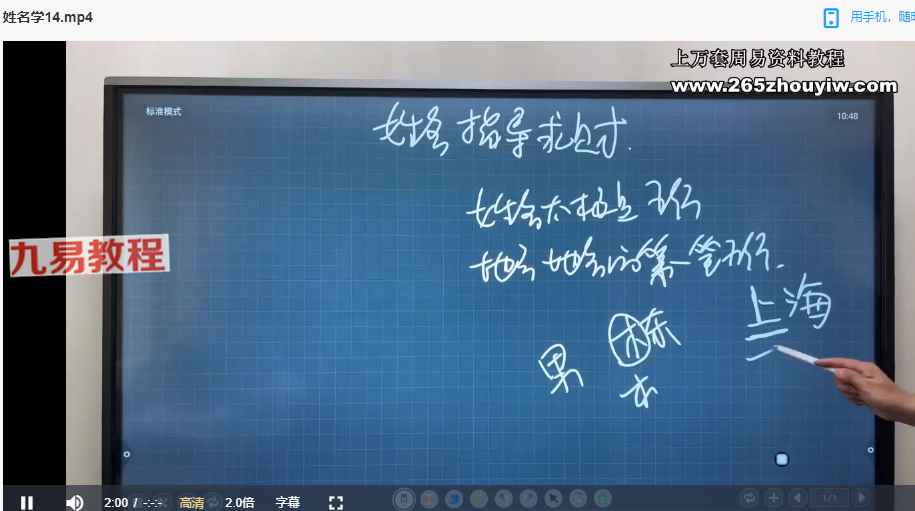 姓名学14.mp4
用手机，随时
上万套周易资料教程
www.265zhouyiw.com
标准模式
10:48
姓名指导求过寸.
姓名太极点 五行
地名 地名的第一笔五行.
九易教程
上海
男
栋
木
2:00 / -:-:- 高清 2.0倍 字幕
1/1